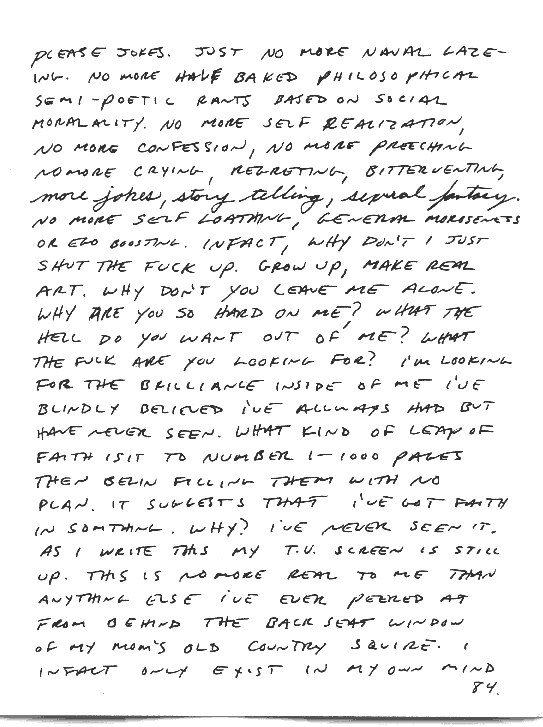 PLEASE JOKES. JUST NO MORE NAVAL GAZE-
ING. NO MORE HALF BAKED PHILOSOPHICAL
SEMI-POETIC RANTS BASED ON SOCIAL
MORALALITY. NO MORE SELF REALIZATION,
NO MORE CONFESSION, NO MORE PREECHING
NO MORE CRYING, REGRETING, BITTERVENTING,
more jokes, story telling, several fantasy.
NO MORE SELF LOATHING, GENERAL MOROSENETS
OR EGO BOOSTING. INFACT, WHY DON'T I JUST
SHUT THE FUCK UP. GROW UP, MAKE REAL
ART. WHY DON'T YOU LEAVE ME ALONE.
WHY ARE YOU SO HARD ON ME? WHAT THE
HELL DO YOU WANT OUT OF ME? WHAT
THE FUCK ARE YOU LOOKING FOR? I'M LOOKING
FOR THE BRILLIANCE INSIDE OF ME I'VE
BLINDLY BELIEVED I'VE ALLWAYS HAD BUT
HAVE NEVER SEEN. WHAT KIND OF LEAP OF
FAITH IS IT TO NUMBER 1-1000 PAGES
THEN BEGIN FILLING THEM WITH NO
PLAN. IT SUGGESTS THAT I'VE GOT FAITH
IN SOMTHING. WHY? I'VE NEVER SEEN IT.
AS I WRITE THIS MY T.V. SCREEN IS STILL
UP. THIS IS NO MORE REAL TO ME THAN
ANYTHING ELSE I'VE EVER PEERED AT
FROM BEHIND THE BACK SEAT WINDOW
OF MY MOM'S OLD COUNTRY SQUIRE. I
INFACT ONLY EXIST IN MY OWN MIND
84.